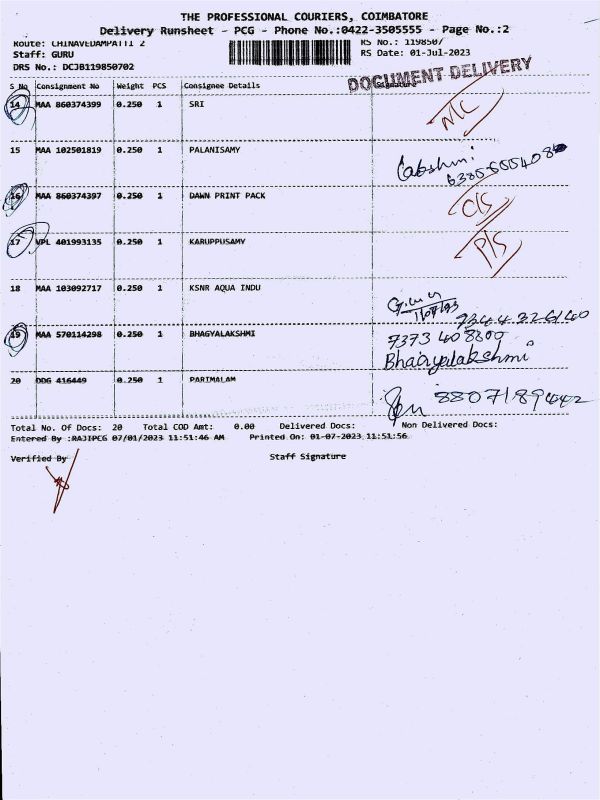 THE PROFESSIONAL COURIERS, COIMBATORE
Delivery Runsheet - PCG - Phone No.:0422-3505555 - Page No.:2
Route: CHINAVEDAMPATTI 2
RS No.: 1198507
Staff: GURU
RS Date: 01-Jul-2023
DRS No.: DCJB119850702
DOCUMENT DELIVERY
S No Consignment No Weight PCS Consignee Details Signature
14 MAA 860374399 0.250 1 SRI N/C
15 MAA 102501819 0.250 1 PALANISAMY Lakshmi
16 MAA 860374397 0.250 1 DAWN PRINT PACK C/S
17 VPL 401993135 0.250 1 KARUPPUSAMY P/S
18 MAA 103092717 0.250 1 KSNR AQUA INDU
19 MAA 570114298 0.250 1 BHAGYALAKSHMI 7373 408800
Bhagyalakshmi
20 DDG 416449 0.250 1 PARIMALAM
Total No. Of Docs: 20 Total COD Amt: 0.00 Delivered Docs: Non Delivered Docs:
Entered By :RAJIPCG 07/01/2023 11:51:46 AM Printed On: 01-07-2023 11:51:56
Verified By Staff Signature